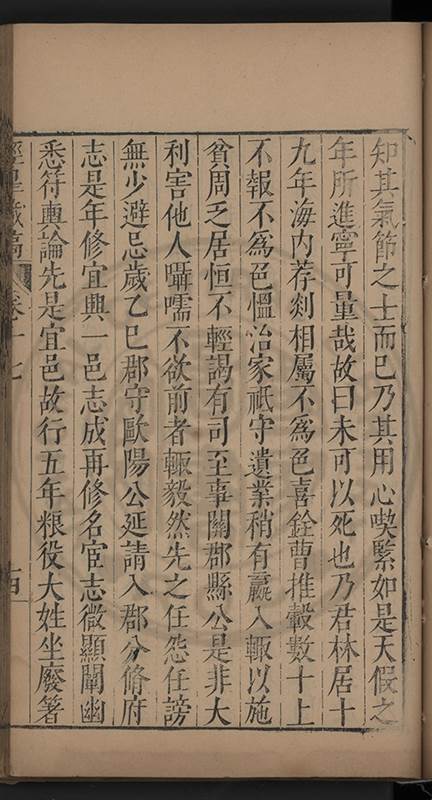 知其氣節之士而已乃其用心喫緊如是天假之
年所進寧可量哉故曰未可以死也乃君林居十
九年海內荐剡相屬不為色喜銓曹推轂數十上
不報不為色慍治家祗守遺業稍有贏入輙以施
貧周乏居恒不輕謁有司至事關郡縣公是非大
利害他人囁嚅不欲前者輙毅然先之任怨任謗
無少避忌歲乙巳郡守歐陽公延請入郡分脩府
志是年修宜興一邑志成再修名宦志微顯闡幽
悉符輿論先是宜邑故行五年粮役大姓坐廢箸
卷十七